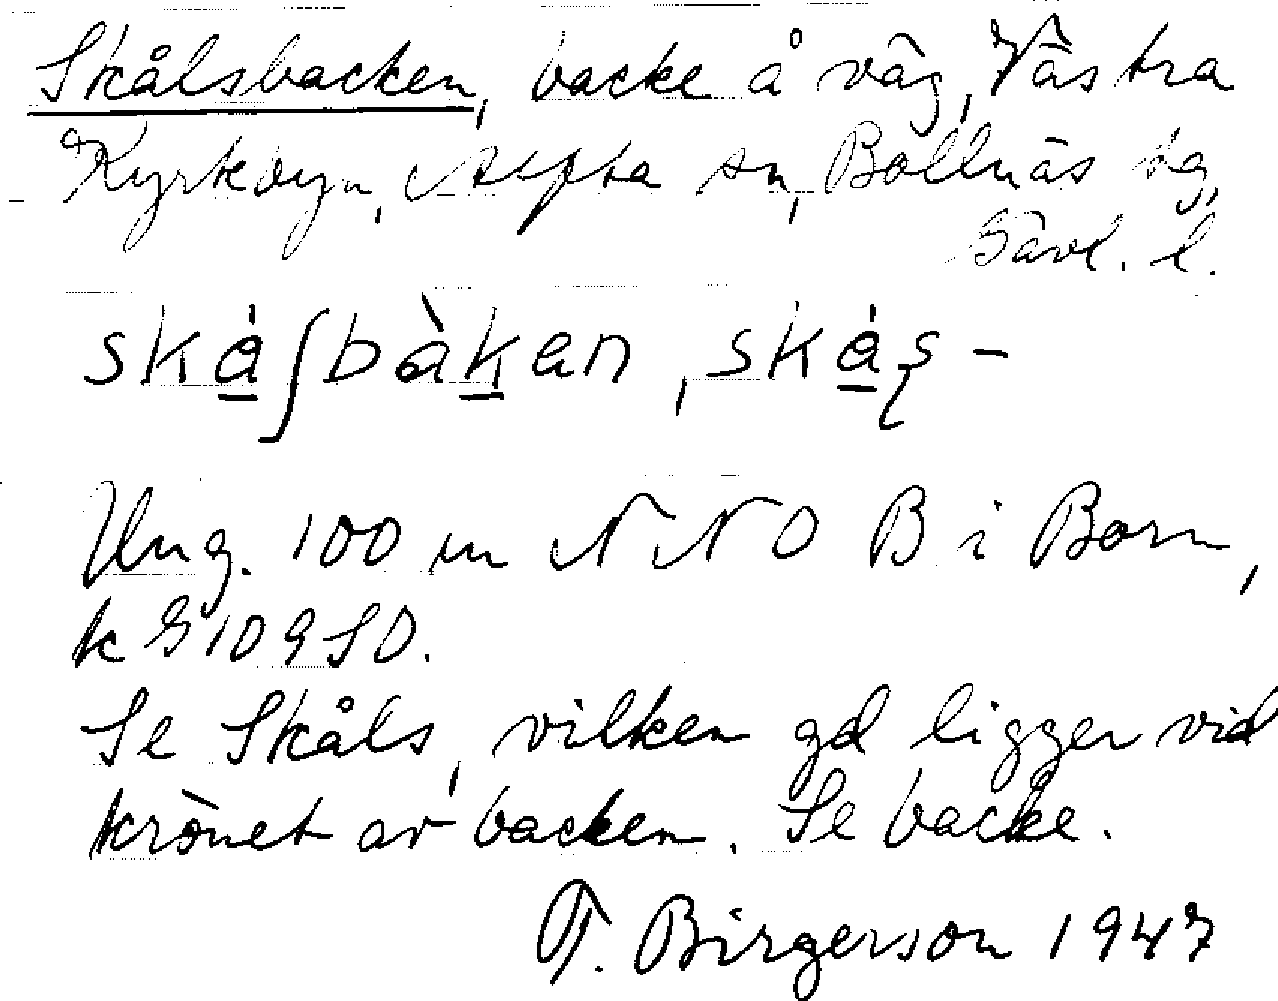 Skålsbacken, backe å väg, Västra
Kyrkbyn, Alfta sn, Bollnäs tg,
Gävl. l.
skáʃbàken, skáʂ-
Ung. 100 m NNO B i Born,
k G 109 SO.
Se Skåls, vilken gd ligger vid
krönet av backen. Se backe.
T. Birgerson 1947